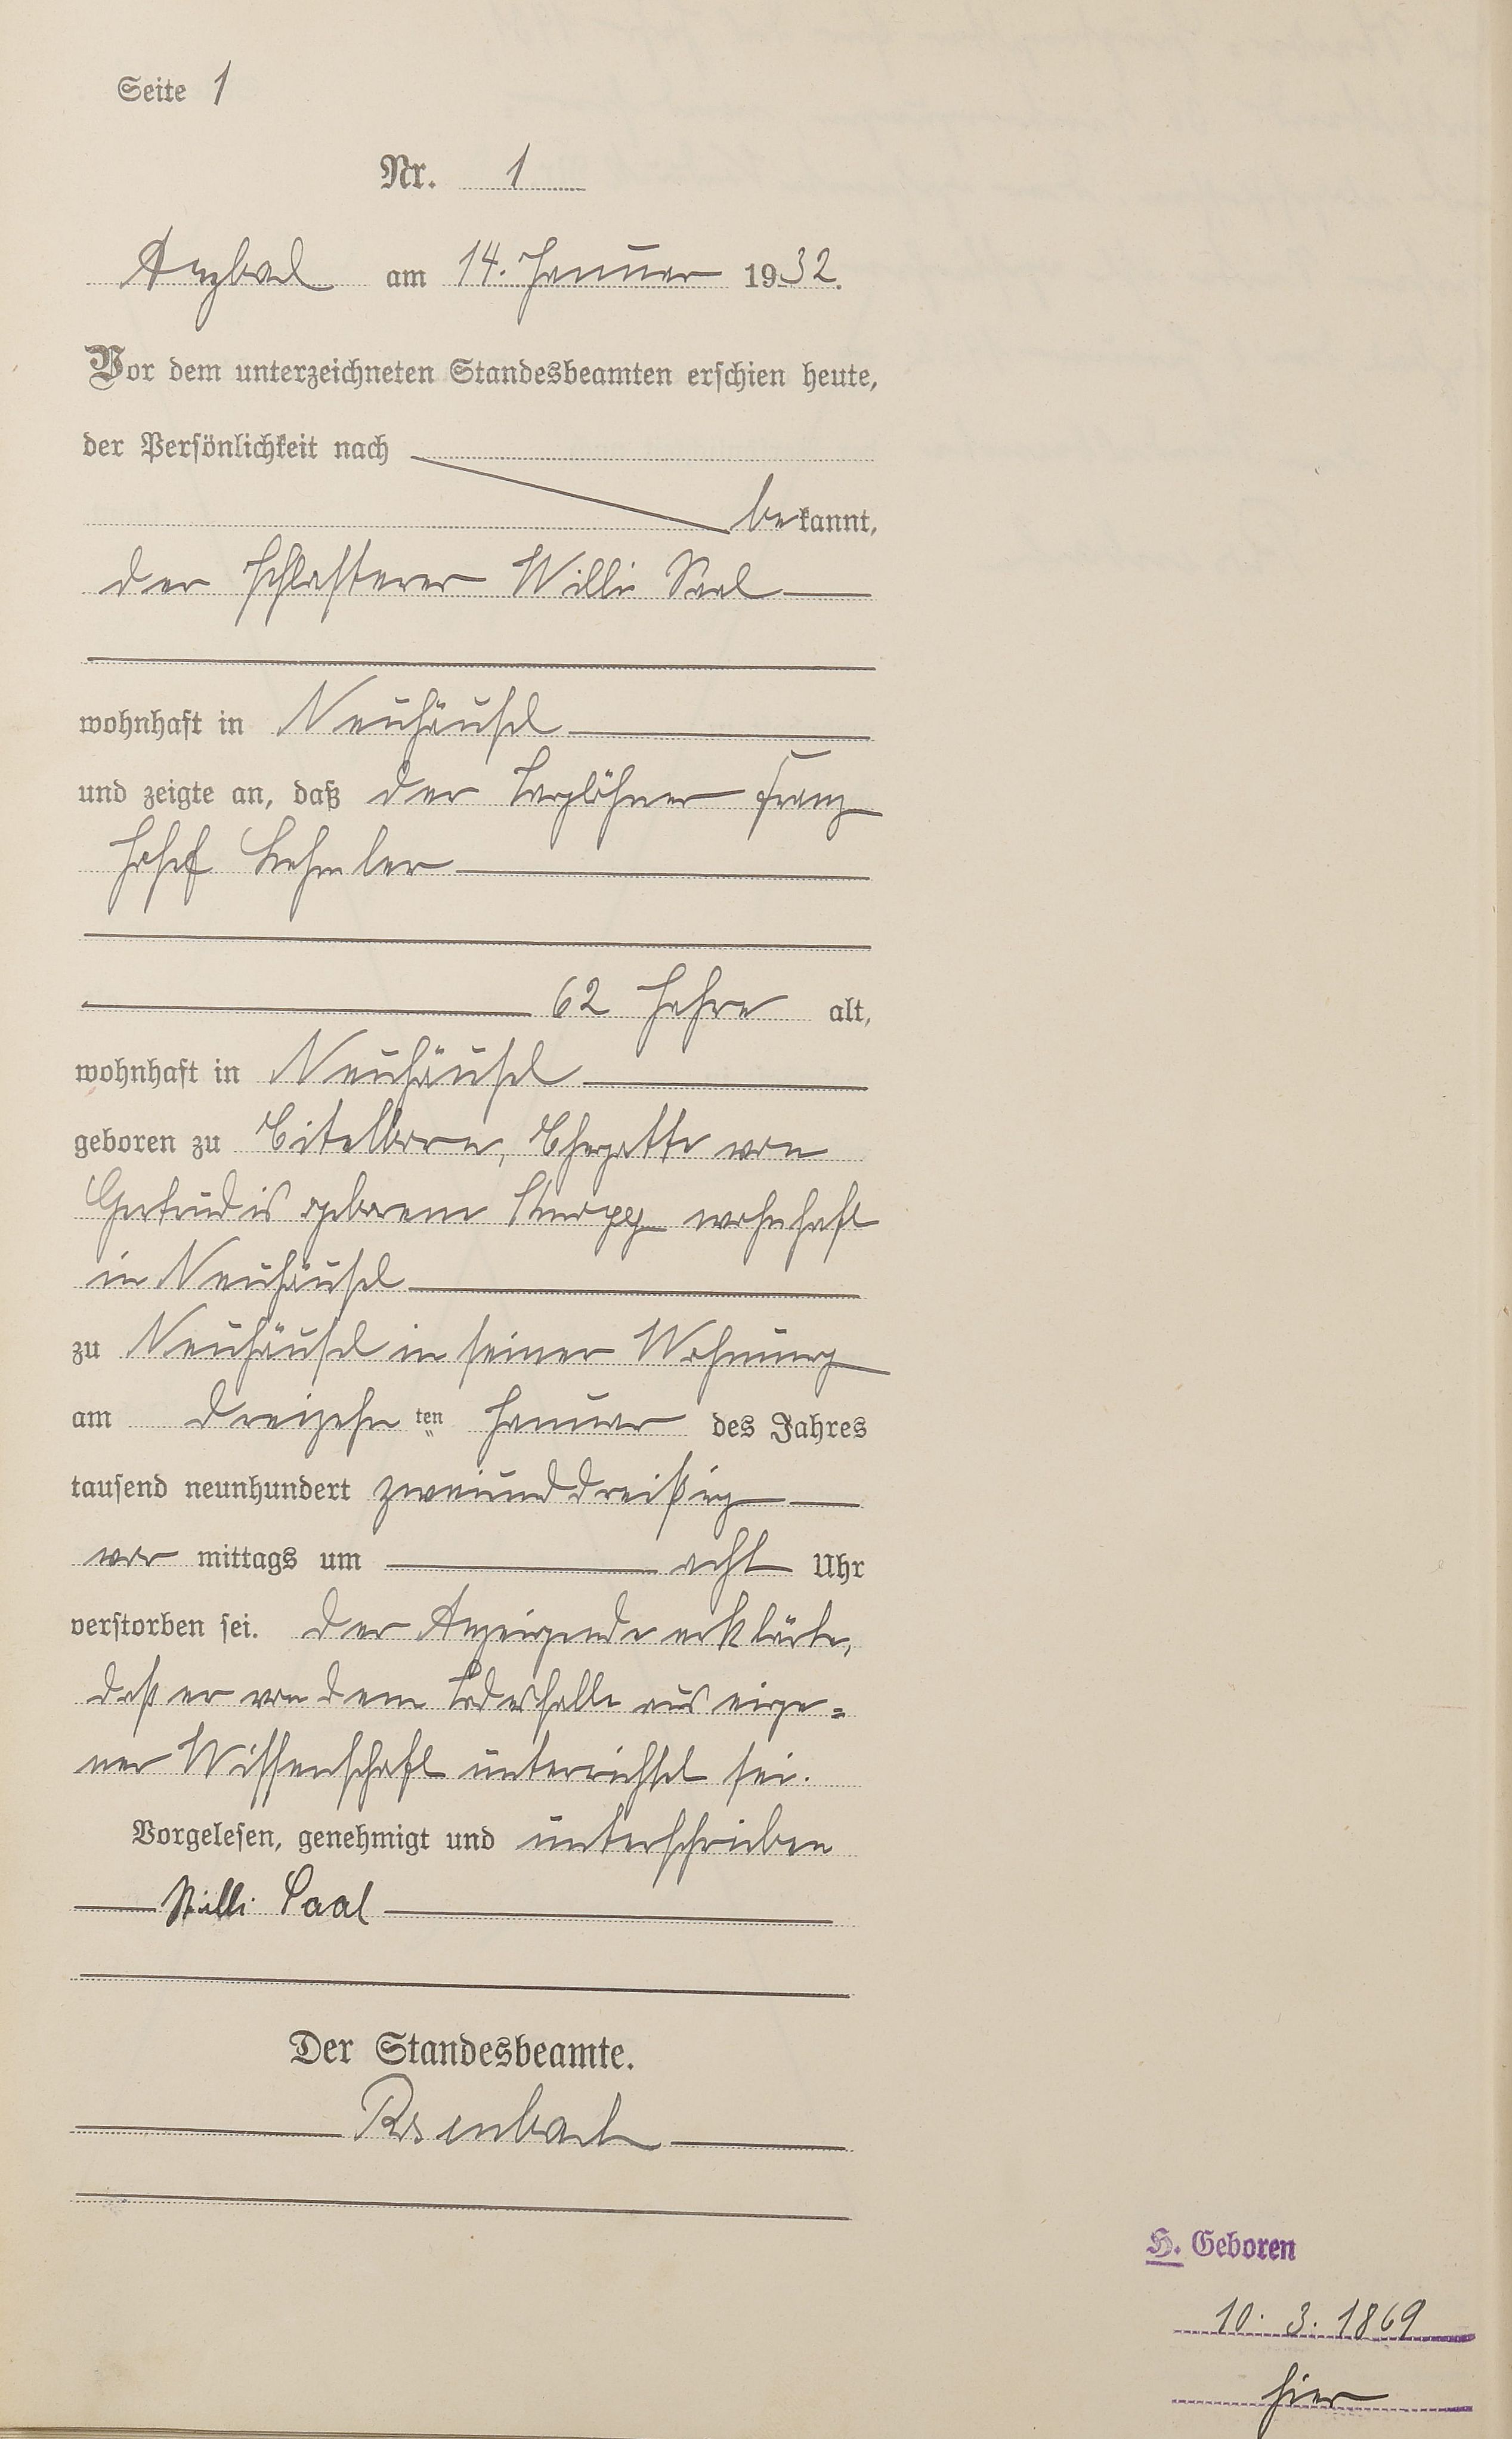 Seite 1
Nr. 1
Arzbach am 14. Januar 1932.
Vor dem unterzeichneten Standesbeamten erschien heute,
der Persönlichkeit nach
bekannt,
der Pflasterer Willi Saal
wohnhaft in Neuhäusel
und zeigte an, daß der Taglöhner Franz
Josef
62 Jahre alt,
wohnhaft in Neuhäusel
geboren zu Eitelborn, Ehegatte von
Gertrudis geborene wohnhaft
in Neuhäusel
zu Neuhäusel in seiner Wohnung
am dreizehnten Januar des Jahres
tausend neunhundert zweiunddreißig
vor mittags um acht Uhr
verstorben sei. Der Anzeigende erklärte,
daß er von dem Todesfalle aus eige=
ner Wissenschaft unterrichtet sei.
Vorgelesen, genehmigt und unterschrieben
Willi Saal
Der Standesbeamte.
Rosenbach
H. Geboren
10. 3. 1869
hier